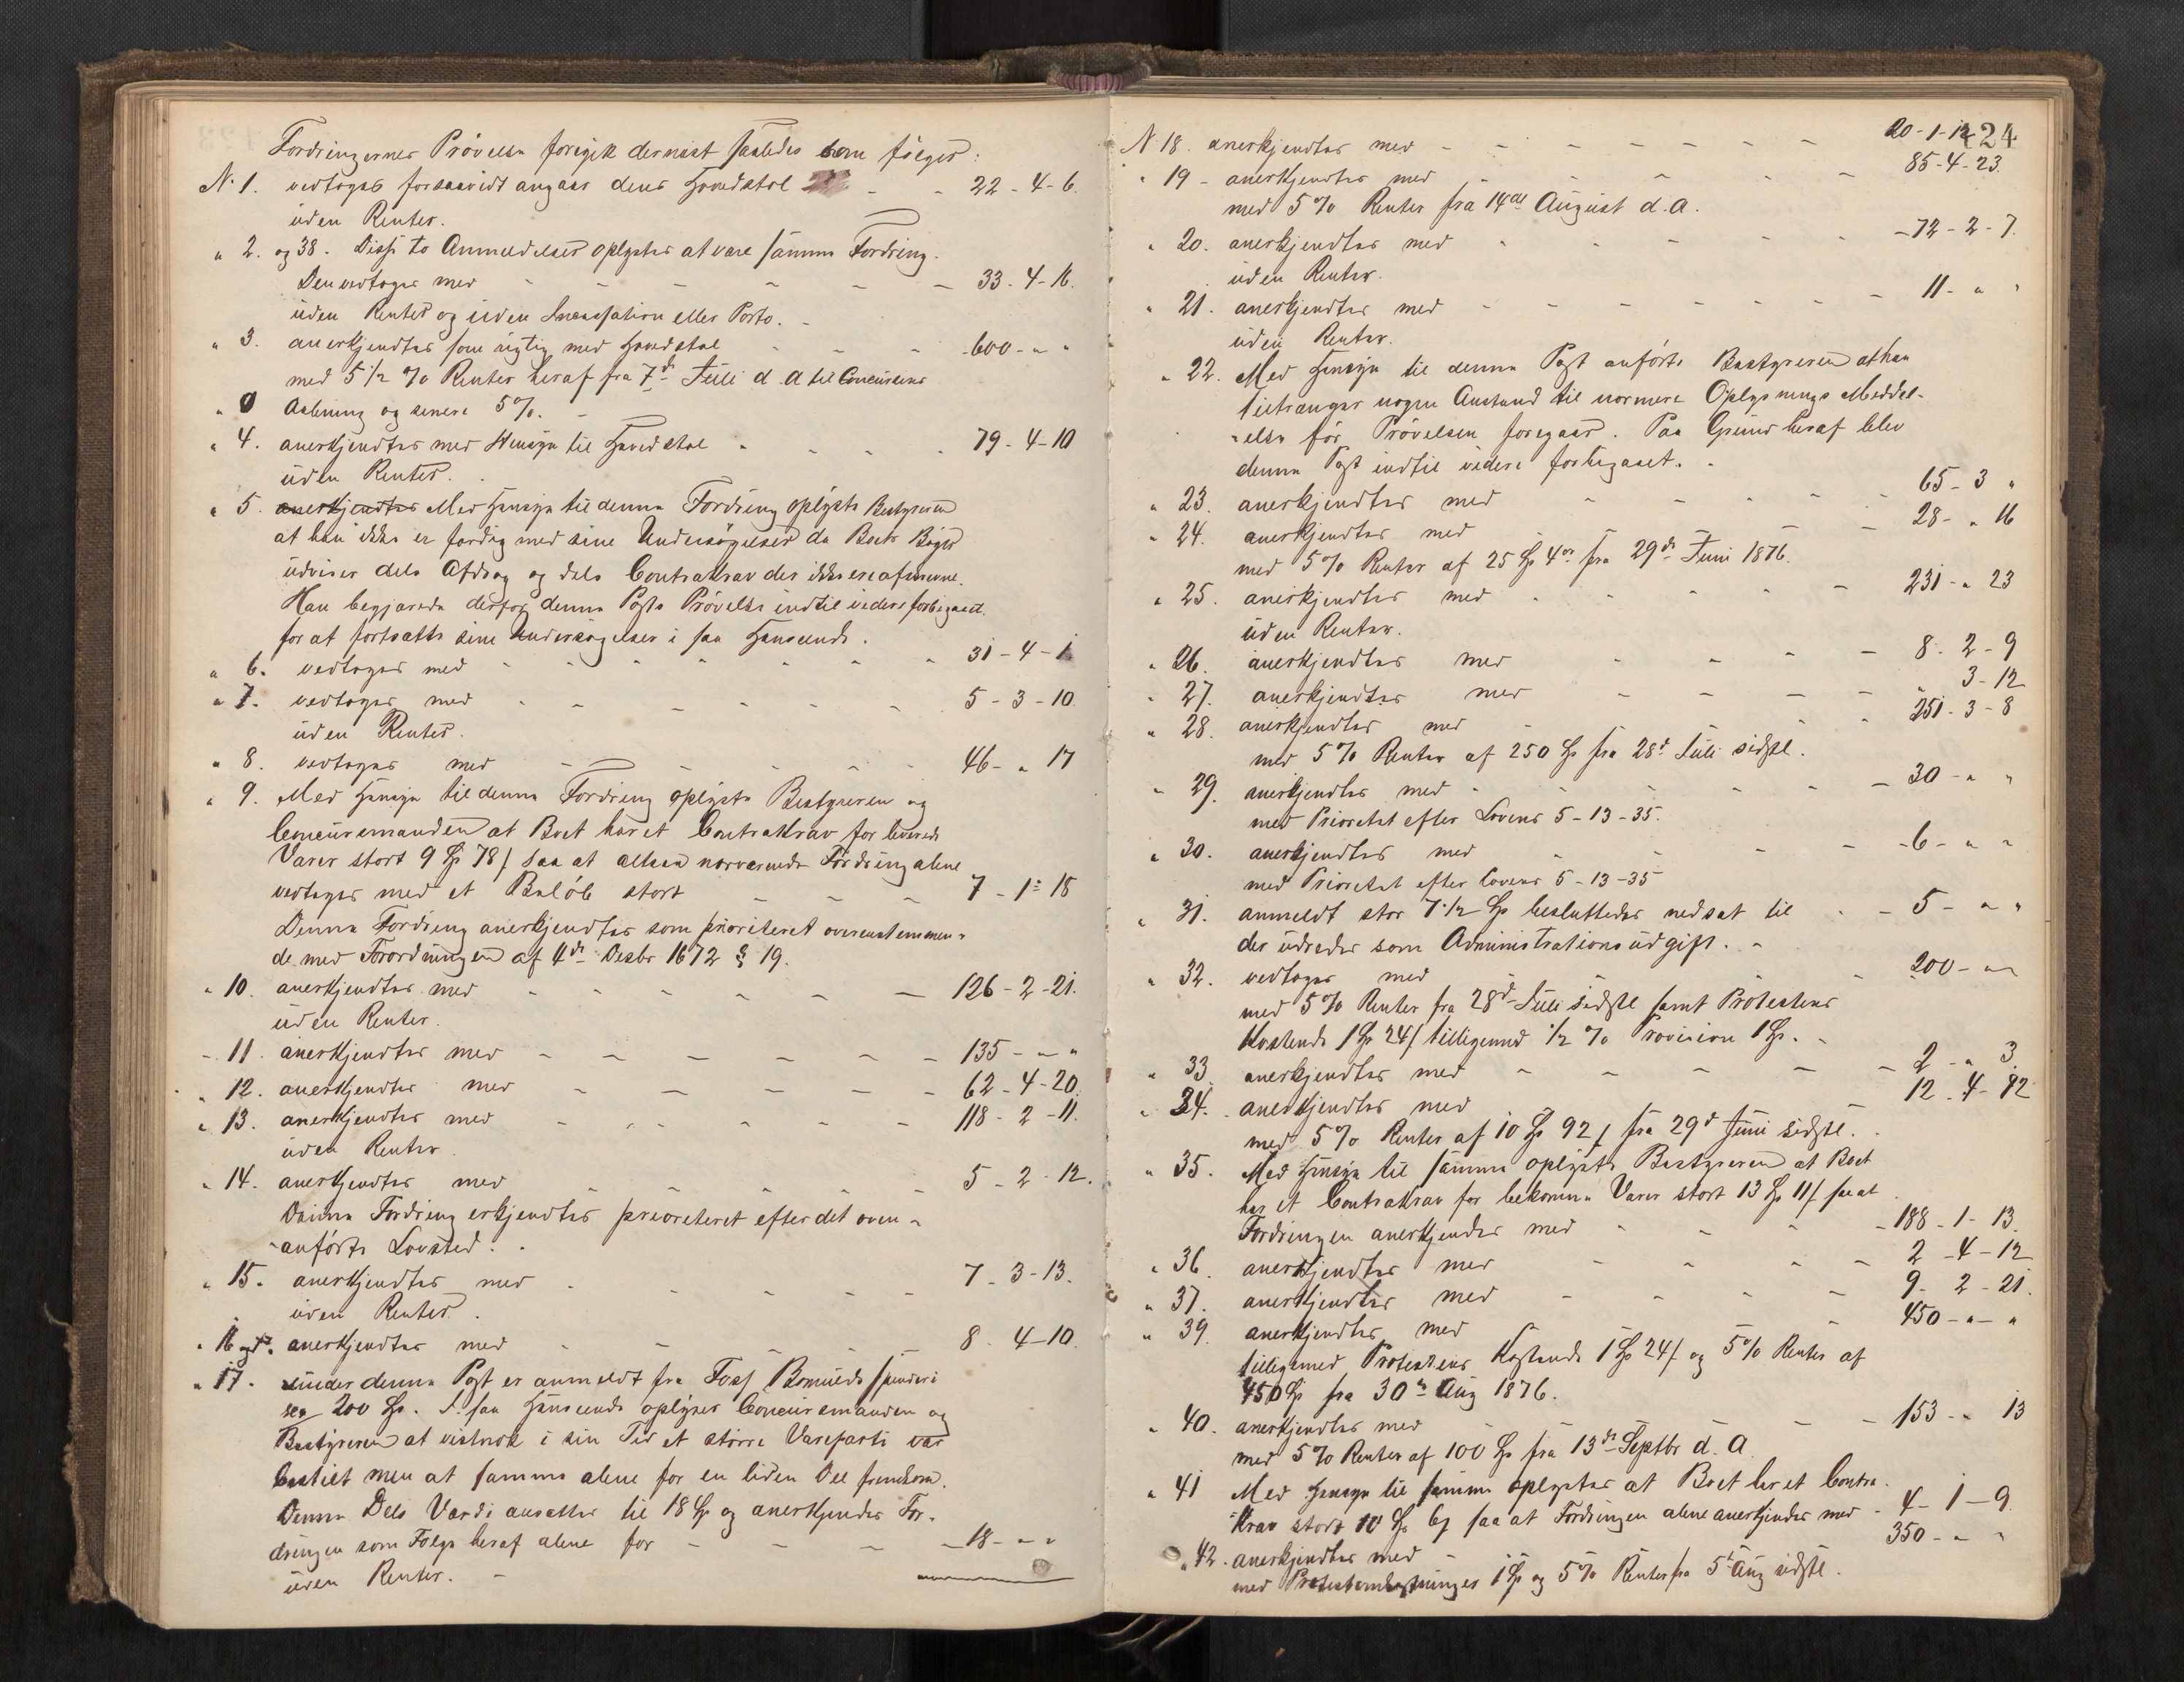 Fordringernes Prövelse foregik dernæst saaledes som fölger:
No 1. vedtoges forsaavidt angaar dens Hovedstol - - 22-4-6.
uden Renter.
" 2. og 38. Disse to Anmeldelser oplystes at være samme Fordring.
Den vedtoges med - - - - - - 33-4-16.
uden Renter og uden Incassation eller Porto. -
" 3. anerkjendtes som rigtig med Hovedstol - - - 600 - " "
med 5 1/2 % Renter heraf fra 7de Juli d. A til Concursens
" 0 Aabning og senere 5%. -
" 4. anerkjendtes med Hensyn til Hovedstol - - - - 79-4-10
uden Renter. .
" 5. anerkjendtes Med Hensyn til denne Fordring oplyste Bestyreren
at han ikke er færdig med sine Undersögelser da Boets Böger
udviser dels Afdrag og dels Contrakrav der ikke ere afskrevne.
Han begjærede derfor denne Posts Prövelse indtil videre forbigaaet
for at fortsætte sine Undersögelser i saa Henseende.
" 6. vedtoges med - - - - - - 31-4-1
" 7. vedtoges med - - - - - - 5-3-10.
uden Renter.
" 8. vedtoges med - - - - - 46 - " 17
" 9. Med Hensyn til denne Fordring oplyste Bestyreren og
Concursmanden at Boet har et Contrakrav for leverede
Varer stort 9 Sp 78 s saa at altsaa nærværende Fordring alene
vedtoges med et Belöb stort - - - 7-1-18
Denne Fordring anerkjendtes som prioriteret overenstemmen-
de med Forordningen af 4de Decbr 1672 § 19.
" 10. anerkjendtes med - - - - - - 126-2-21.
uden Renter.
" 11. anerkjendtes med - - - - - - 135 - " "
" 12. anerkjendtes med - - - - - 62-4-20.
" 13. anerkjendtes med - - - - - 118-2-11.
uden Renter.
" 14. anerkjendtes med - - - - - 5-2-12.
Denne Fordring erkjendtes prioriteret efter det oven-
-anförte Lovsted. .
" 15. anerkjendtes med - - - - - 7-3-13.
uden Renter.
" 16 anerkjendtes med - - - - - 8-4-10.
" 17. under denne Post er anmeldt fra Foss
200 Sp. I saa Henseende oplyser Concursmanden og
Bestyreren at vistnok i sin Tid et större Vareparti var
bestilt men at samme alene for en liden Del fremkom.
Denne Dels Værdi ansættes til 18 Sp og anerkjendes For-
dringen som Fölge heraf alene for - - - - 18 - " "
uden Renter. -
424
No 18. anerkjendtes med - - - - - - - 20-1-12
" 19 - anerkjendtes med - - - - - 85-4-23.
med 5% Renter fra 14de August d. A.
" 20. anerkjendtes med - - - - - 72-2-7.
uden Renter.
" 21. anerkjendtes med - - - - - - 11 - " "
uden Renter.
" 22. Med Hensyn til denne Post anförte Bestyreren at han
tiltrænger nogen Anstand til nærmere Oplysnings Meddel-
-else för Prövelsen foregaar. Paa Grund heraf blev
denne Post indtil videre forbigaaet. .
" 23. anerkjendtes med - - - - 65-3 "
" 24. anerkjendtes med - - - - 28 - " 16
med 5% Renter af 25 Sp 4 ort fra 29de Juni 1876.
" 25. anerkjendtes med - - - - - 231 - " 23
uden Renter.
" 26. anerkjendtes med - - - - 8-2-9
" 27. anerkjendtes med - - - - " 3-12
" 28. anerkjendtes med - - - 251-3-8
med 5% Renter af 250 Sp fra 28de Juli sidstl.
" 29. anerkjendtes med - - - - - 30 - " "
med Prioritet efter Lovens 5-13-35.
" 30. anerkjendtes med - - - - 6 - " "
med Prioritet efter Lovens 5-13-35
" 31. anmeldt stor 7 1/2 Sp besluttedes nedsat til - - 5 - " "
der udredes som Administrationsudgift. -
" 32. vedtoges med - - - - - 200 - " "
med 5% Renter fra 28de Juli sidstl samt Protestens
Kostende 1 Sp 24 s tilligemed 1/2 % Provision 1 Sp. -
" 33 anerkjendtes med - - - - - 2 - " 3.
" 34. anerkjendtes med - - 12-4-82
med 5% Renter af 10 Sp 92 s fra 29de Juni sidstl.
" 35. Med Hensyn til samme oplyste Bestyreren at Boet
har et Contrakrav for bekomne Varer stort 13 Sp 11 s saa at
Fordringen anerkjendes med - - - - 188-1-13.
" 36. anerkjendtes med - - - - 2-4-12
" 37. anerkjendtes med - - - - 9-2-21.
" 39. anerkjendtes med - - 450 - " - "
tilligemed Protestens Kostende 1 Sp 24 s og 5% Renter af
450 Sp fra 30te Aug 1876.
" 40. anerkjendtes med - - - - - 153 - " 13
med 5% Renter af 100 Sp fra 13de Septbr d. A
" 41 Med Hensyn til samme oplystes at Boet har et Contra-
-krav stort 10 Sp 6 s saa at Fordringen alene anerkjendes med - 4-1-9.
" 42. anerkjendtes med - 350 - " "
med Protestomkostninger 1 Sp og 5% Renter fra 5te Aug sidstl.